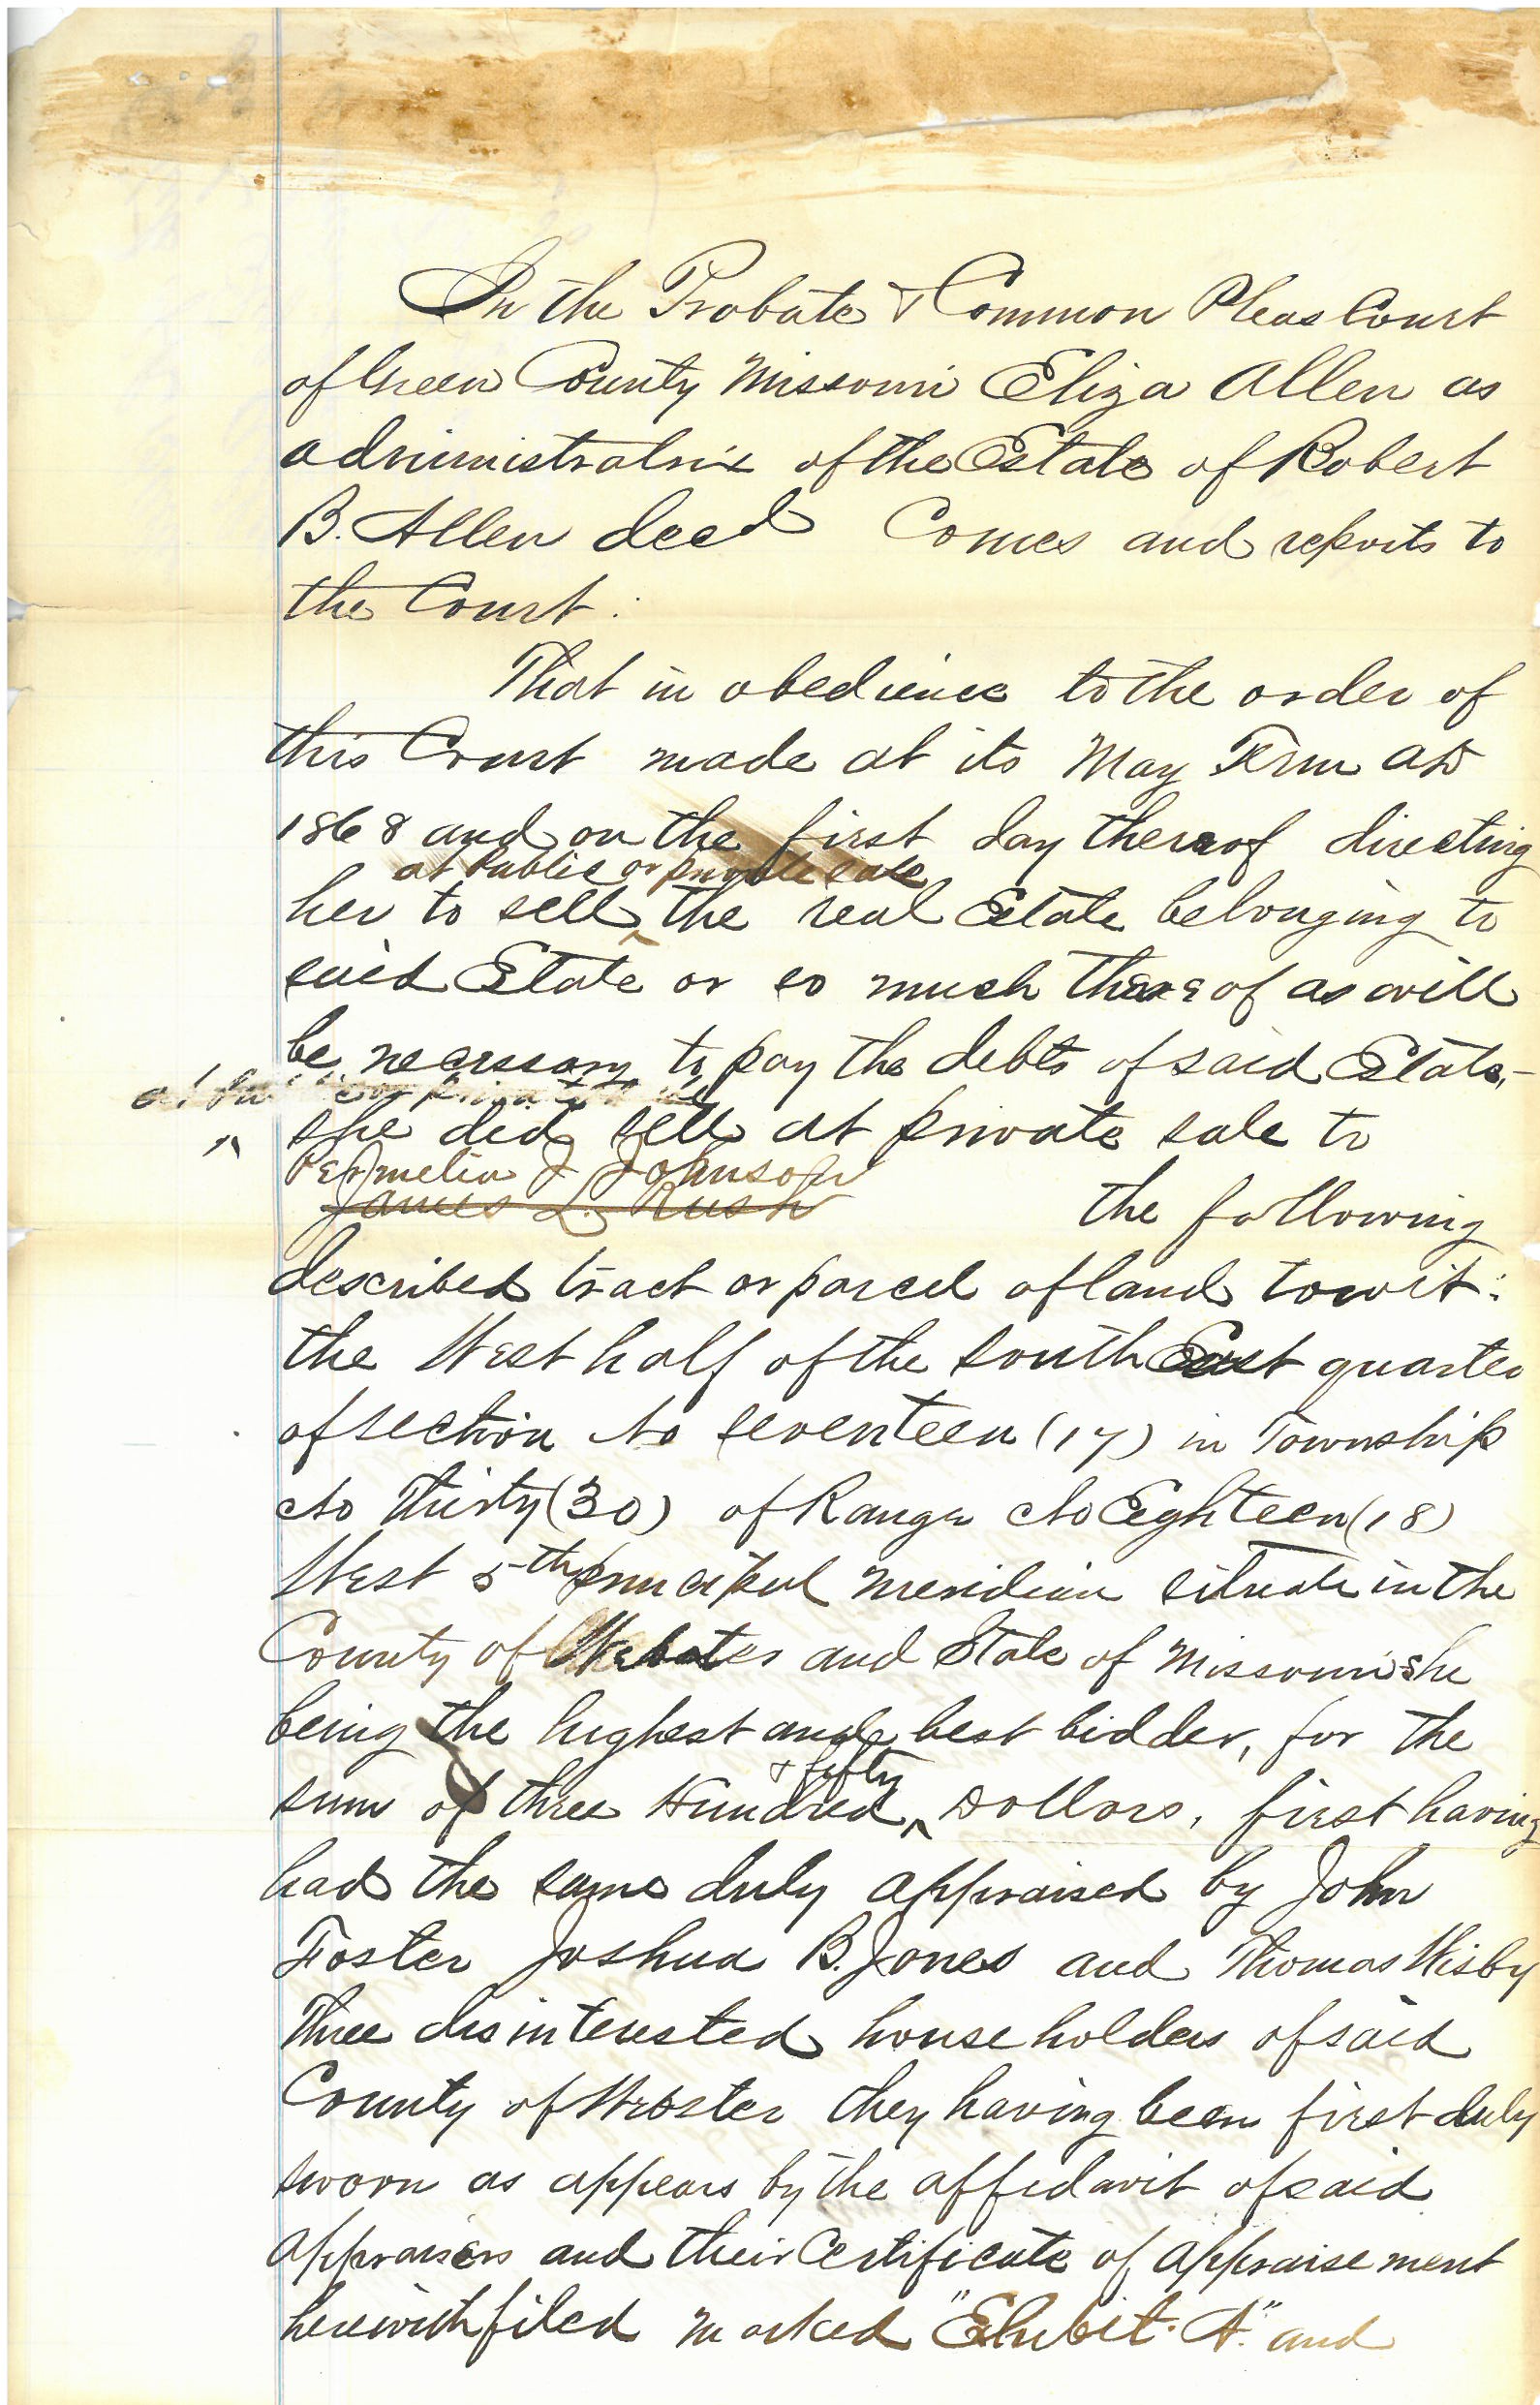 In the Probate & Common Pleas Court
of Green County Missouri Eliza Allen as
administratrix of the Estate of Robert
B. Allen decd Comes and reports to
the Court:
That in obedience to the order of
this Court made at its May Term AD
1868 and on the first day thereof directing
at Public or private sale
her to sell ^ the real Estate belonging to
said Estate or so much thereof as will
be necessary to pay the debts of said Estate,-
she did sell at private sale to
Permelia J Johnson
James L. Rush
the following
described tract or parcel of land towit:
the West half of the South East quarter
of section No seventeen (17) in Township
No Thirty (30) of Range No Eighteen (18)
West 5th principal meridian situate in the
County of Webster and State of Missouri she
being the highest and best bidder, for the
& fifty
sum of three Hundred ^ Dollars, first having
had the same duly appraised by John
Foster Joshua B. Jones and Thomas Wisby
Three disinterested house holders of said
County of Webster they having been first duly
sworn as appears by the affidavit of said
appraisers and their Certificate of appraisement
herewith filed marked "Exhibit. A." and